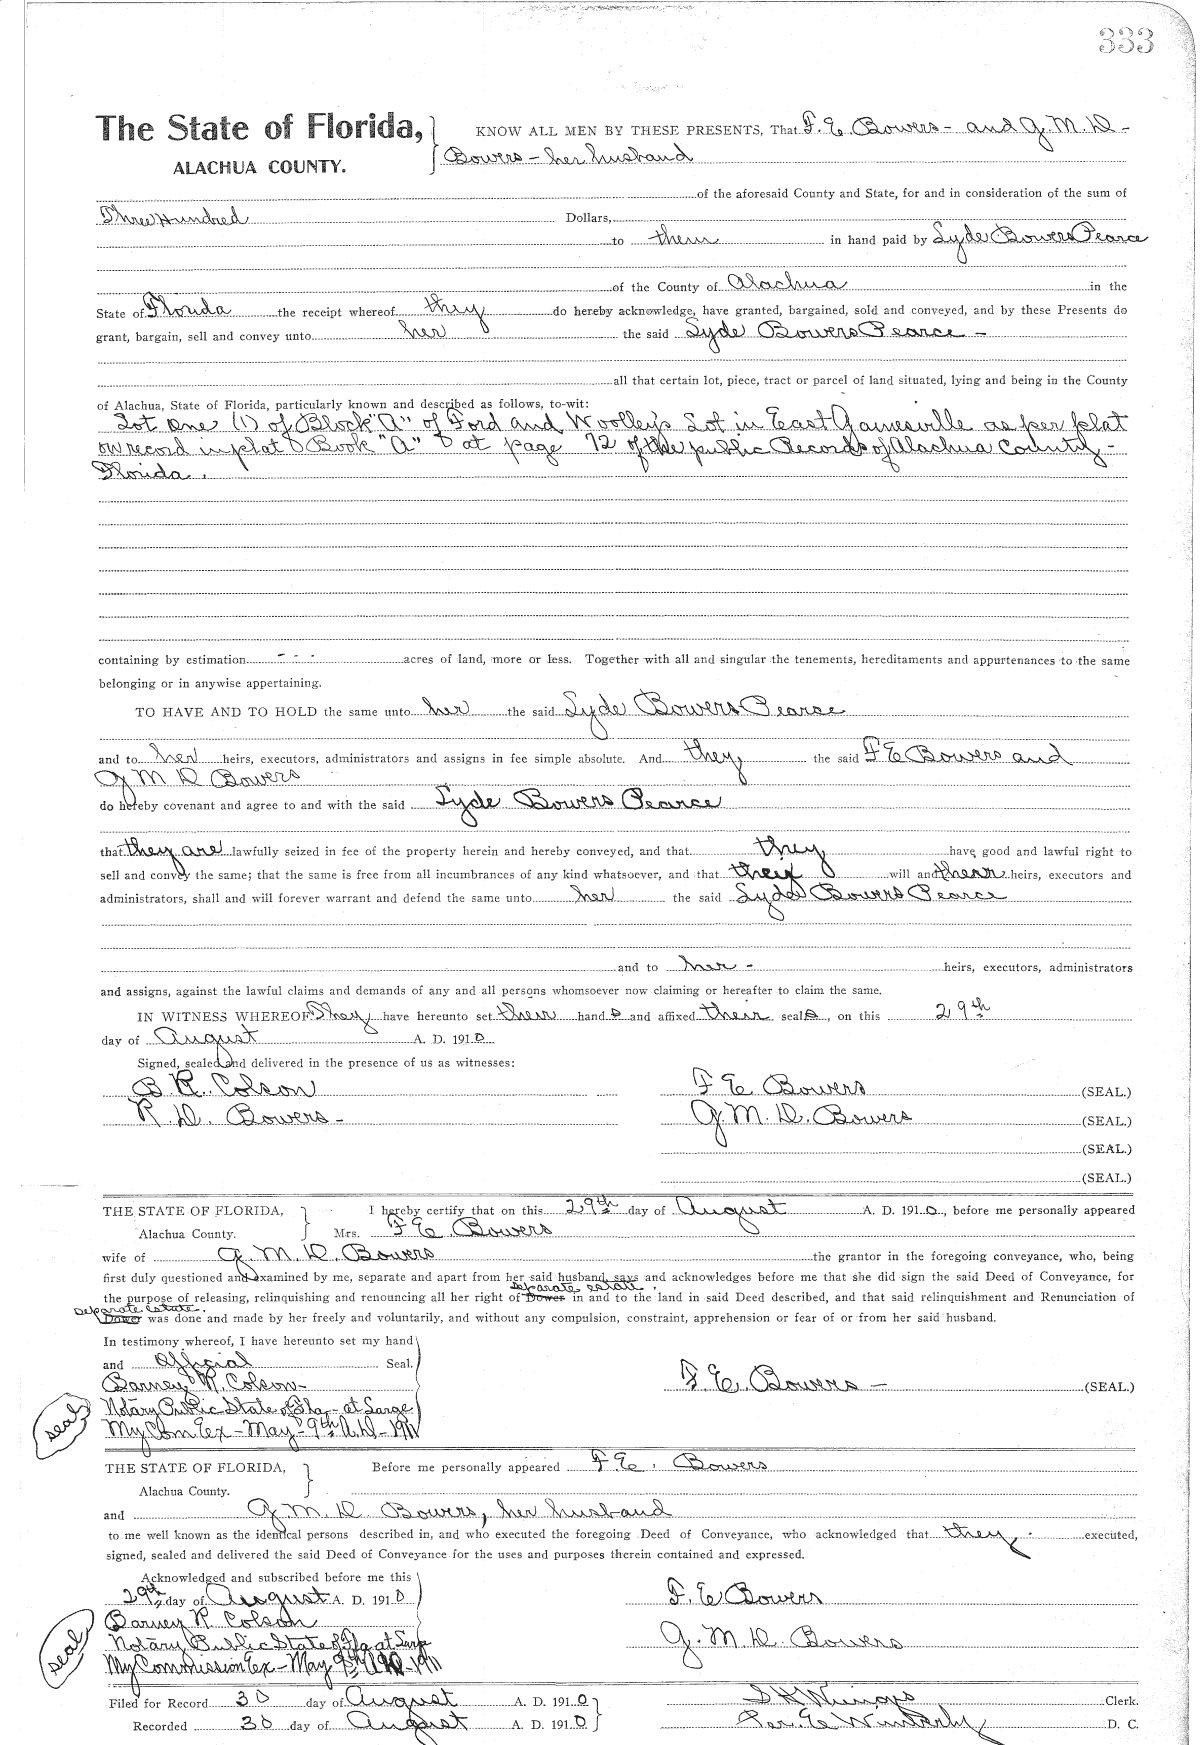 333
The State of Florida, KNOW ALL MEN BY THESE PRESENTS, That F. E. Bowers - and G. M. D -
ALACHUA COUNTY. Bowers - her husband
of the aforesaid County and State, for and in consideration of the sum of
Three Hundred Dollars,
to them in hand paid by Lyde Bowers Pearce
of the County of Alachua in the
State of Florida the receipt whereof they do hereby acknowledge, have granted, bargained, sold and conveyed, and by these Presents do
grant, bargain, sell and convey unto her the said Lyde Bowers Pearce -
all that certain lot, piece, tract or parcel of land situated, lying and being in the County
of Alachua, State of Florida, particularly known and described as follows, to-wit:
Lot One (1) of Block "A" of Ford and Woolley's Lot in East Gainesville as per plat
on record in plat Book "A" at page 72 of the public Records of Alachua County -
Florida.
containing by estimation - - - acres of land, more or less. Together with all and singular the tenements, hereditaments and appurtenances to the same
belonging or in anywise appertaining.
TO HAVE AND TO HOLD the same unto her the said Lyde Bowers Pearce
and to her heirs, executors, administrators and assigns in fee simple absolute. And they the said F E Bowers and
G M D Bowers
do hereby covenant and agree to and with the said Lyde Bowers Pearce
that they are lawfully seized in fee of the property herein and hereby conveyed, and that they have good and lawful right to
sell and convey the same; that the same is free from all incumbrances of any kind whatsoever, and that they will and their heirs, executors and
administrators, shall and will forever warrant and defend the same unto her the said Lyde Bowers Pearce
and to her - heirs, executors, administrators
and assigns, against the lawful claims and demands of any and all persons whomsoever now claiming or hereafter to claim the same.
IN WITNESS WHEREOF They have hereunto set their hands and affixed their seals, on this 29th
day of August A. D. 1910
Signed, sealed and delivered in the presence of us as witnesses:
B R. Colson F E Bowers (SEAL.)
R. D. Bowers - G. M. D. Bowers (SEAL.)
(SEAL.)
(SEAL.)
THE STATE OF FLORIDA, I hereby certify that on this 29th day of August A. D. 1910, before me personally appeared
Alachua County. Mrs. F E Bowers
wife of G. M. D. Bowers the grantor in the foregoing conveyance, who, being
first duly questioned and examined by me, separate and apart from her said husband, says and acknowledges before me that she did sign the said Deed of Conveyance, for
separate estate.
the purpose of releasing, relinquishing and renouncing all her right of Dower in and to the land in said Deed described, and that said relinquishment and Renunciation of
separate estate.
Dower was done and made by her freely and voluntarily, and without any compulsion, constraint, apprehension or fear of or from her said husband.
In testimony whereof, I have hereunto set my hand
and Official Seal.
Barney R. Colson - F. E. Bowers - (SEAL.)
seal Notary Public State of Fla - at Large
My Com Ex - May - 9th A.D - 1911
THE STATE OF FLORIDA, Before me personally appeared F. E. Bowers
Alachua County.
and G. M. D. Bowers, her husband
to me well known as the identical persons described in, and who executed the foregoing Deed of Conveyance, who acknowledged that they executed,
signed, sealed and delivered the said Deed of Conveyance for the uses and purposes therein contained and expressed.
Acknowledged and subscribed before me this
29th day of August A. D. 1910 F. E Bowers
Barney R. Colson
seal Notary Public State of Fla at Large G. M. D. Bowers
My Commission Ex - May 9th AD - 1911
Filed for Record 30 day of August A. D. 1910 S H Wienges Clerk.
Recorded 30 day of August A. D. 1910 Per. E Wimberly D. C.